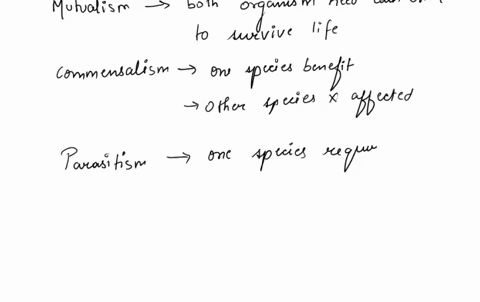 Mutualism → both organism need
to survive life
Commensalism → one species benefit
→ Other species x affected
Parasitism → one species requ